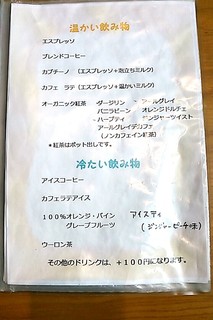 温かい飲み物
エスプレッソ
ブレンドコーヒー
カプチーノ (エスプレッソ+泡立ちミルク)
カフェ ラテ (エスプレッソ+温かいミルク)
オーガニック紅茶 ・ダージリン ・アールグレイ
・バニラビーン ・オレンジドルチェ
・ハーブティ ・ジンジャーツイスト
・アールグレイデカフェ
(ノンカフェイン紅茶)
*紅茶はポット出しです。
冷たい飲み物
アイスコーヒー
カフェラテアイス
100%オレンジ・パイン アイスティ
グレープフルーツ (ジンジャーピーチ)
ウーロン茶
その他のドリンクは、+100円になります。